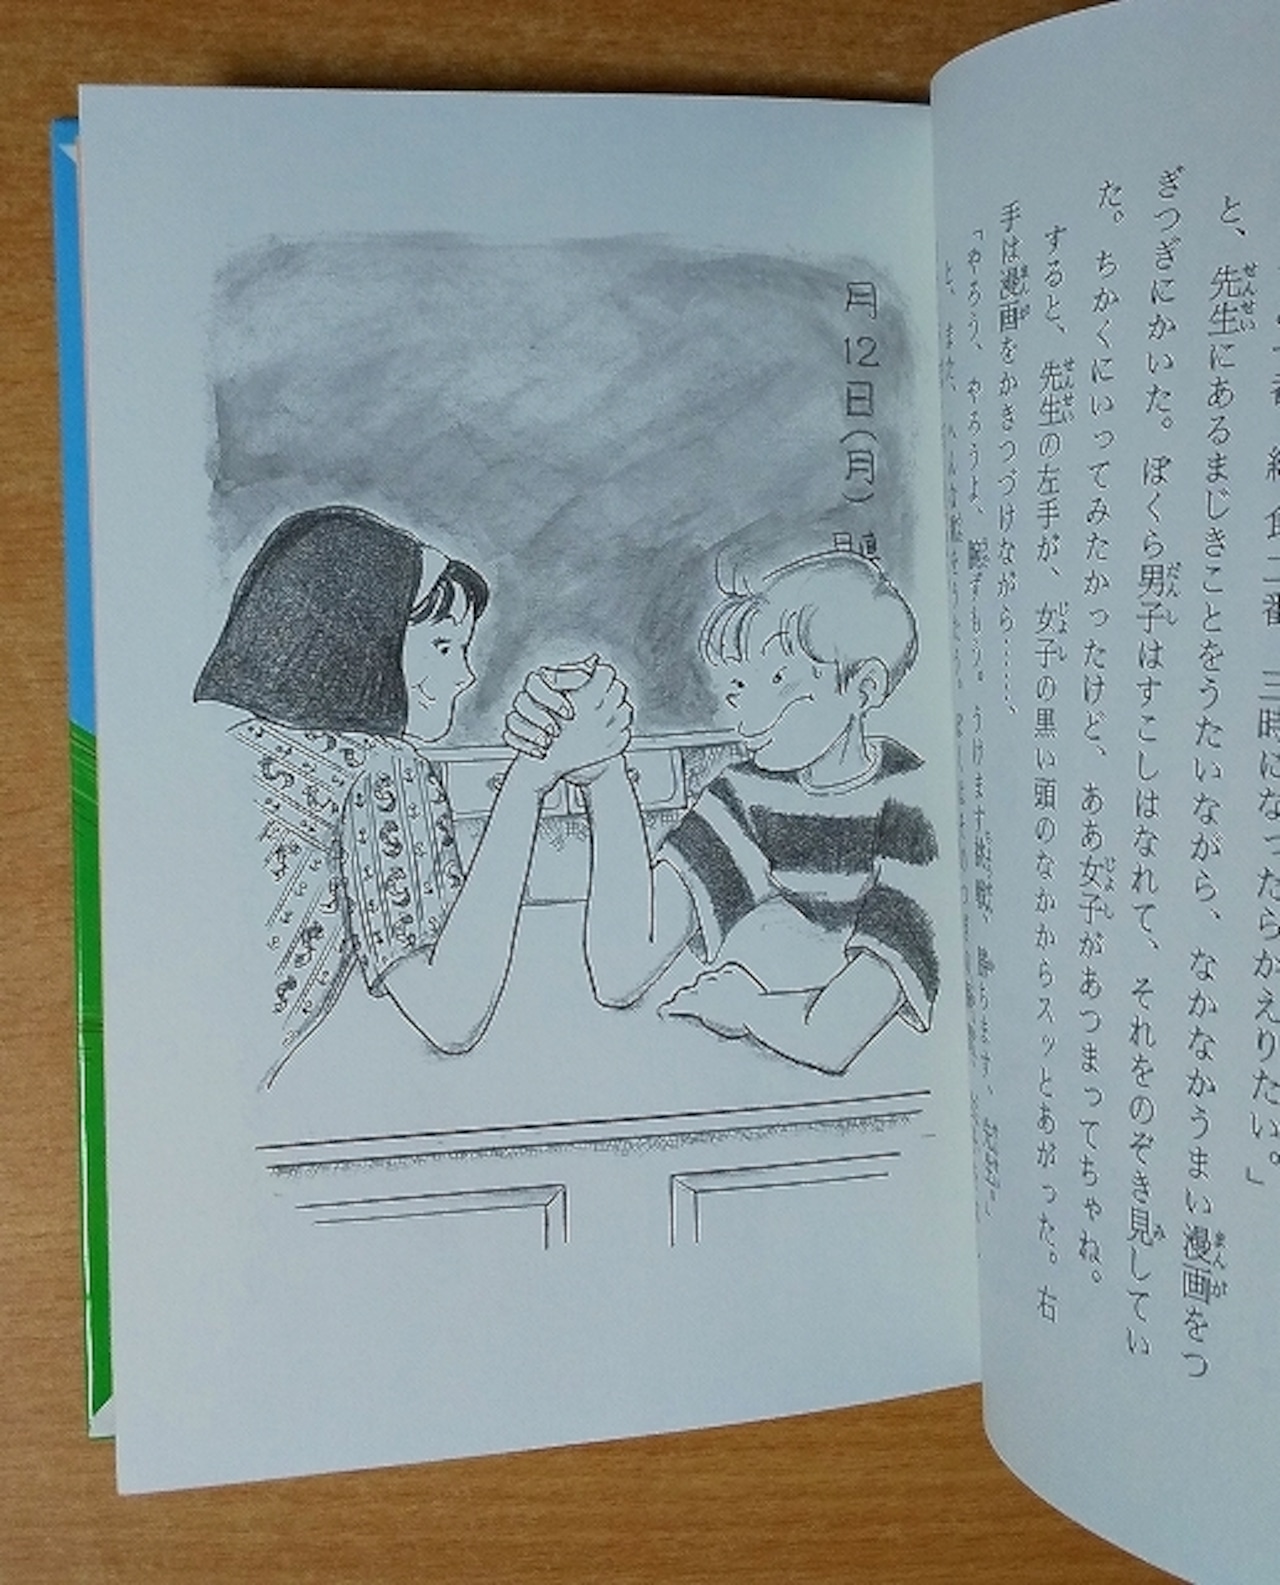 給食二番、三時になったらかえりたい。」
と、先生にあるまじきことをうたいながら、なかなかうまい漫画をつ
ぎつぎにかいた。ぼくら男子はすこしはなれて、それをのぞき見してい
た。ちかくにいってみたかったけど、ああ女子があつまってちゃね。
すると、先生の左手が、女子の黒い頭のなかからスッとあがった。右
手は漫画をかきつづけながら……、
「やろう、やろうよ、腕ずもう。うけます挑戦、勝ちます、
と、また、へんな歌をうたう。
月12日(月)
日直